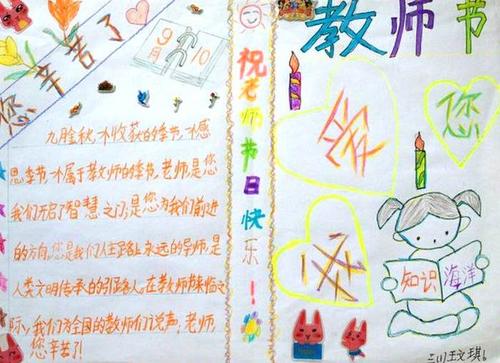 您辛苦了
9月10
九月金秋,收获的季节,感
恩季节,属于教师的季节,老师,是您
我们开启了智慧之门,是您为我们前进
的方向,您是我们人生路上永远的导师,是
人类文明传承的引路人。在教师节来临之
际,我们为全国的教师们说声:老师,
您辛苦了!
祝老师节日快乐!
教师节
您
知识海洋